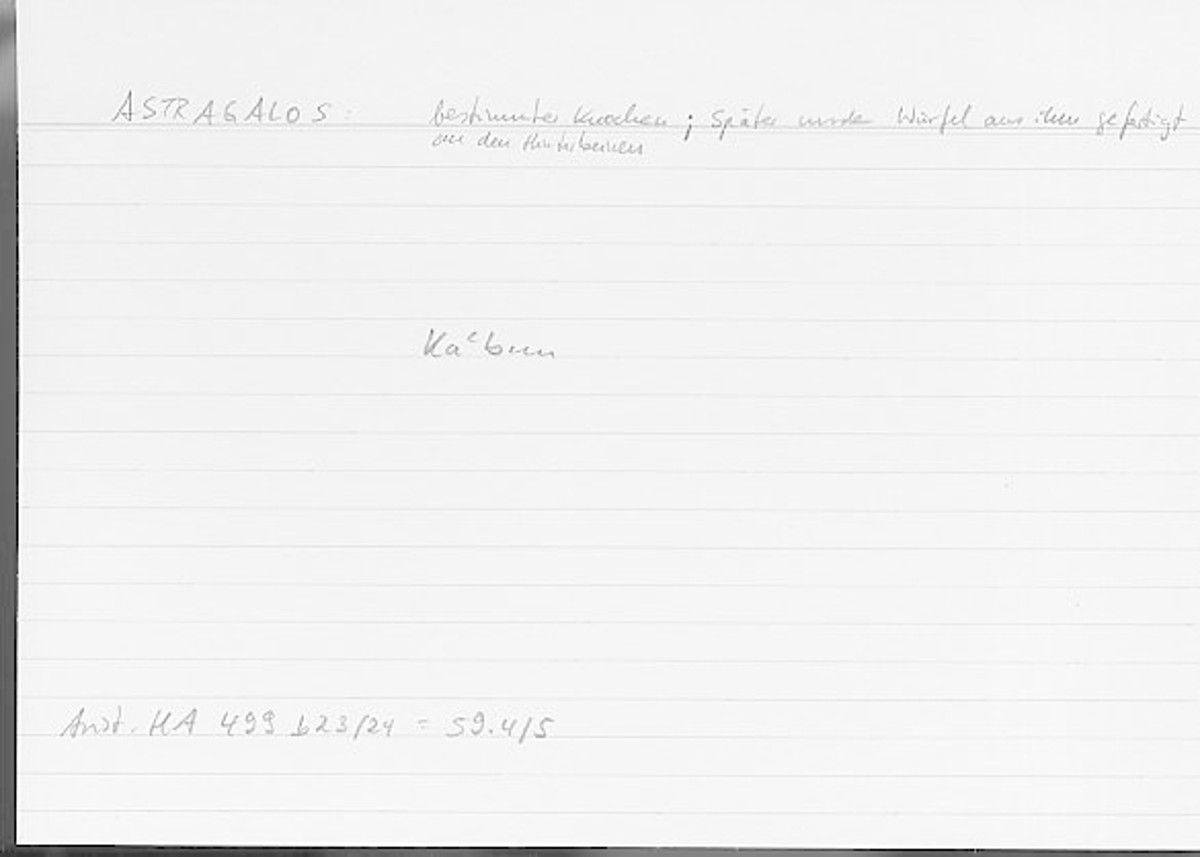 ASTRAGALOS: bestimmter Knochen; später wurde Würfel aus ihm gefertigt
an den Hinterbeinen
Kaʿbun
Arist. HA 499 b23/24 = 59.4/5